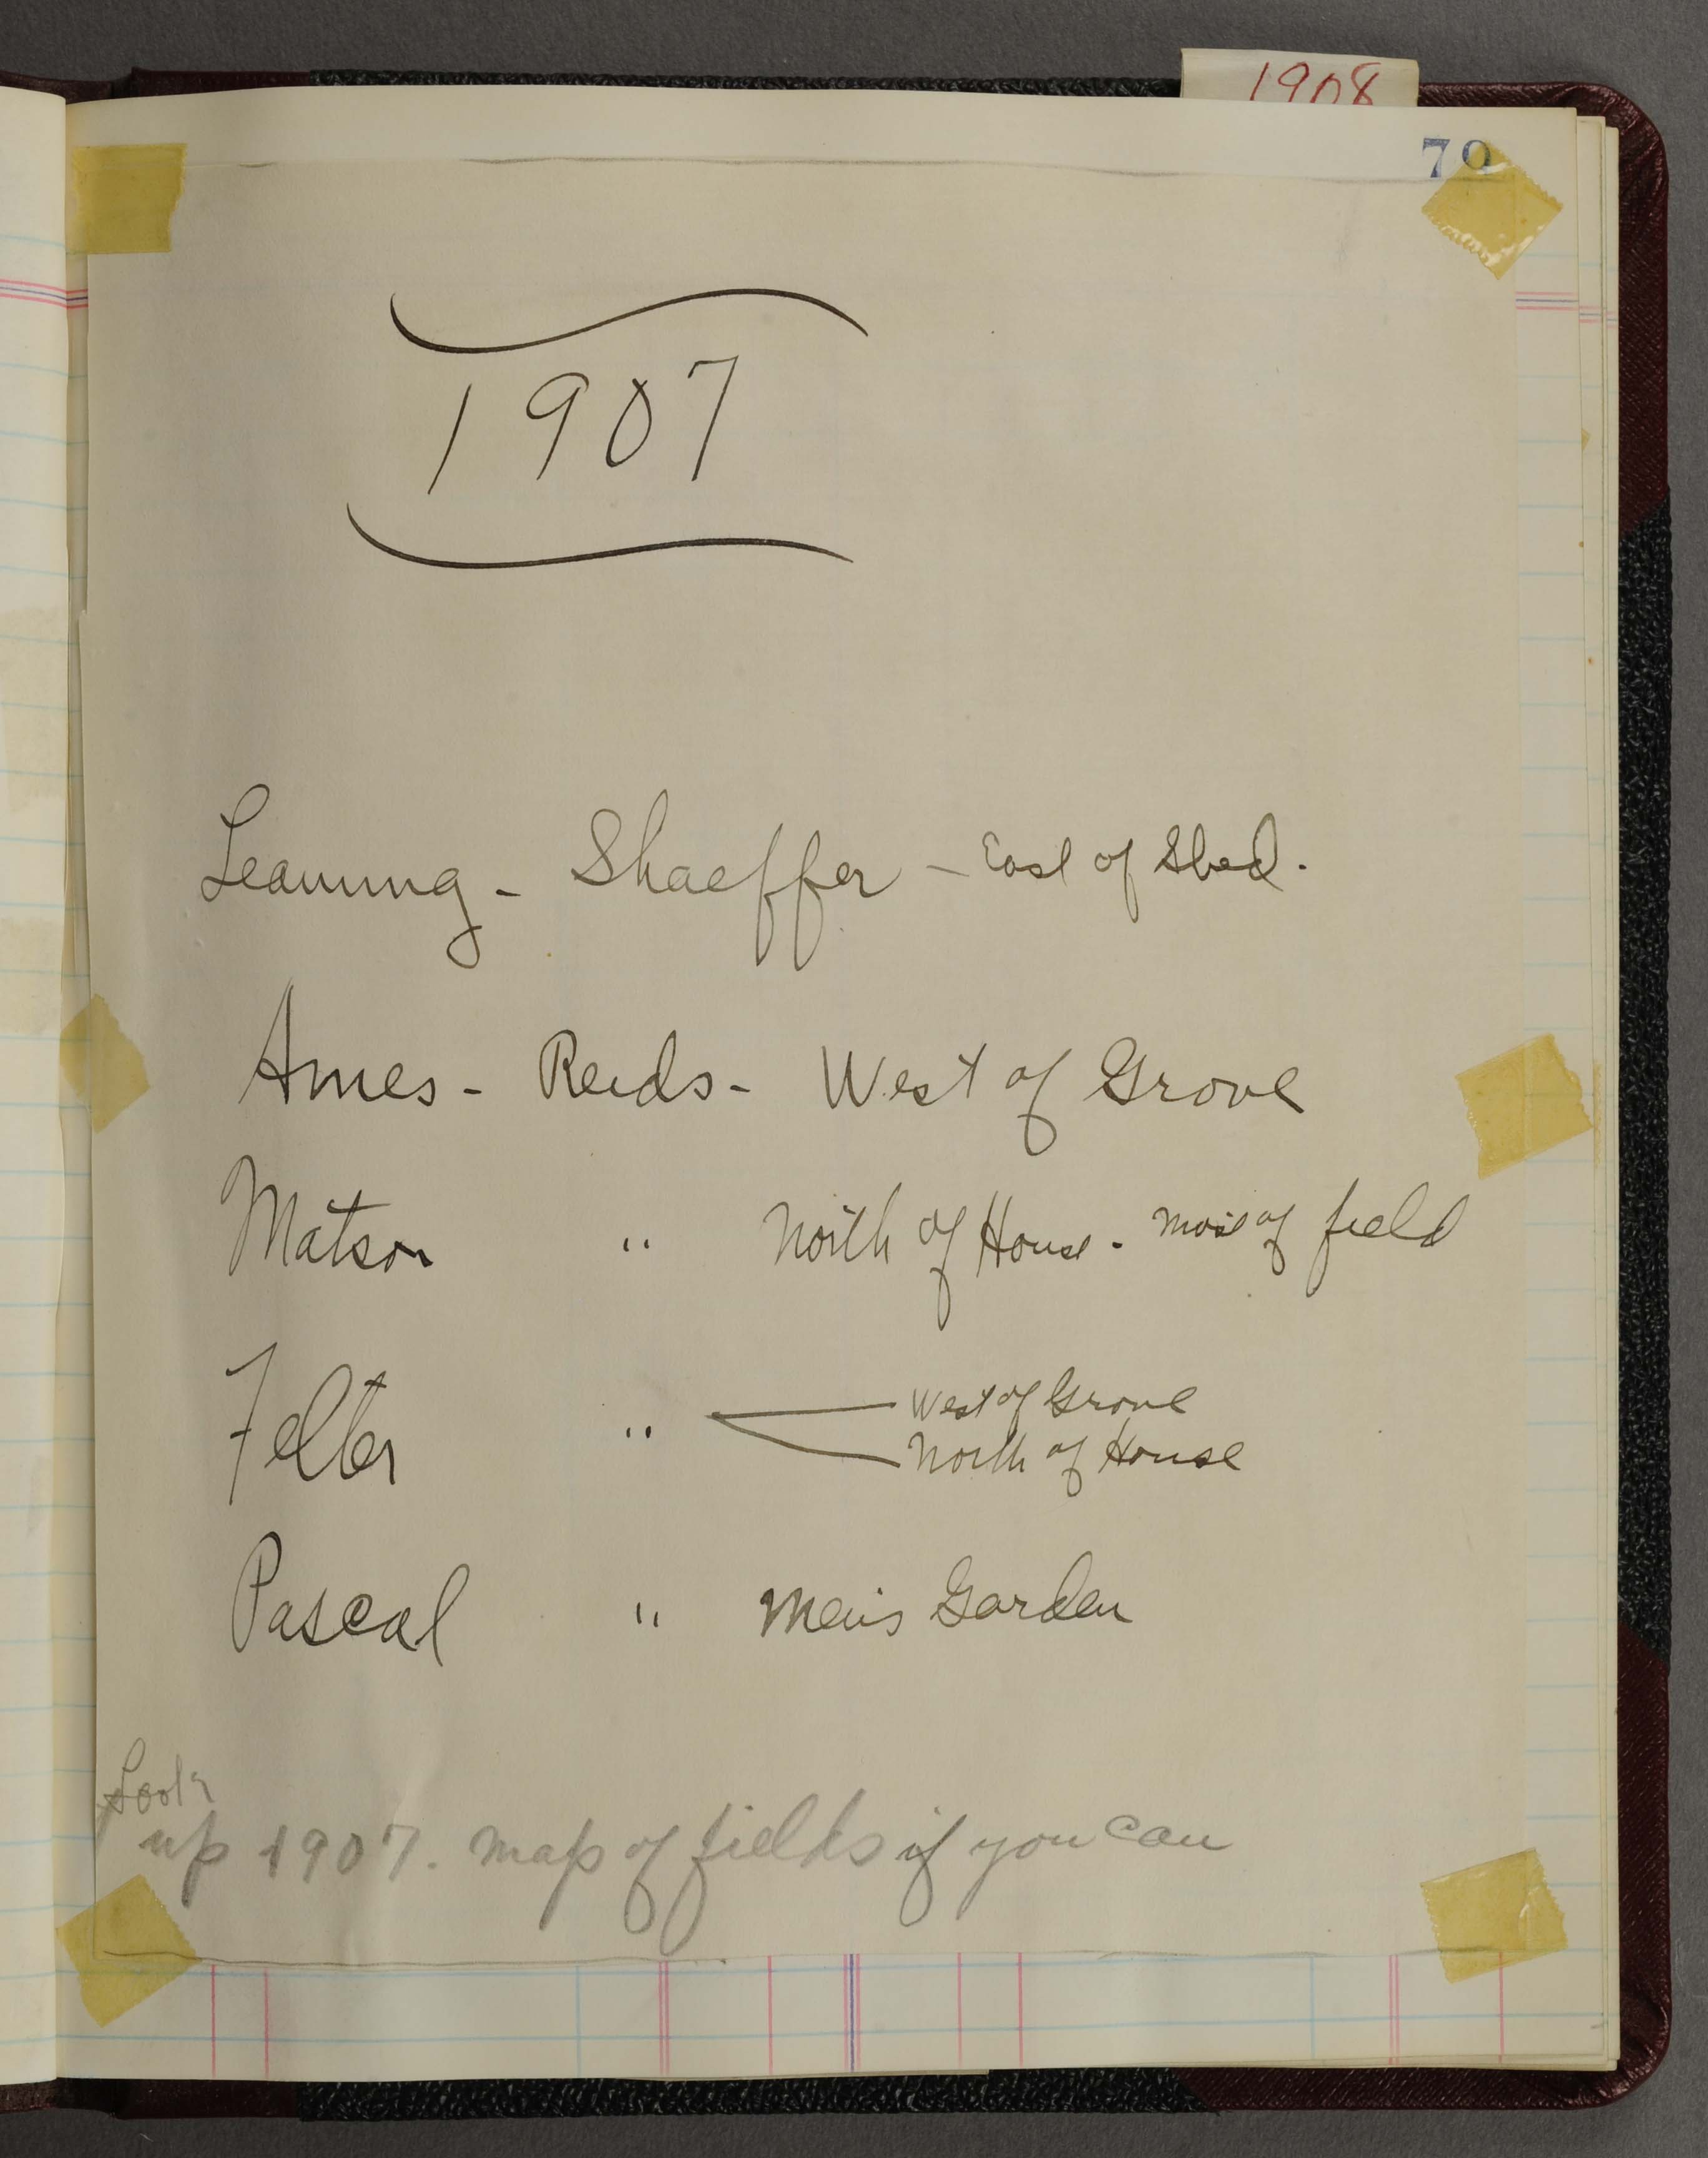 1908
79
1907
Leaming - Shaeffer - East of Shed.
Ames - Reids - West of Grove
Matson " North of House - most of field
Felter " West of Grove
North of House
Pascal " Mens Garden
Look
up 1907. map of fields if you can